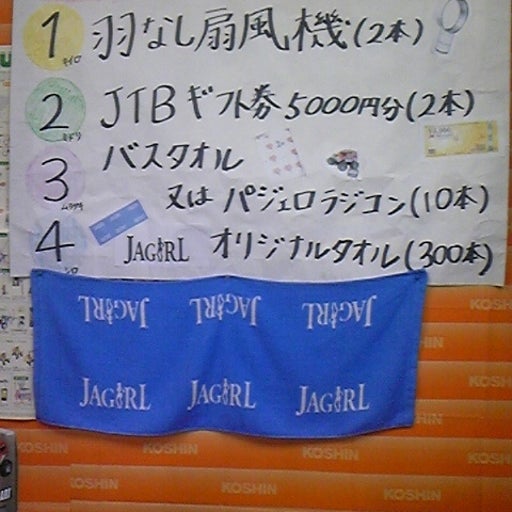 1 羽なし扇風機(2本)
キイロ
2 JTBギフト券5000円分(2本)
ミドリ
3 バスタオル
又は パジェロラジコン(10本)
ムラサキ
4 JAGIRL オリジナルタオル(300本)
シロ
JAGIRL JAGIRL JAGIRL
JAGIRL JAGIRL JAGIRL
KOSHIN
KOSHIN
KOSHIN
KOSHIN
KOSHIN
KOSHIN
KOSHIN
KOSHIN
KOSHIN
KOSHIN